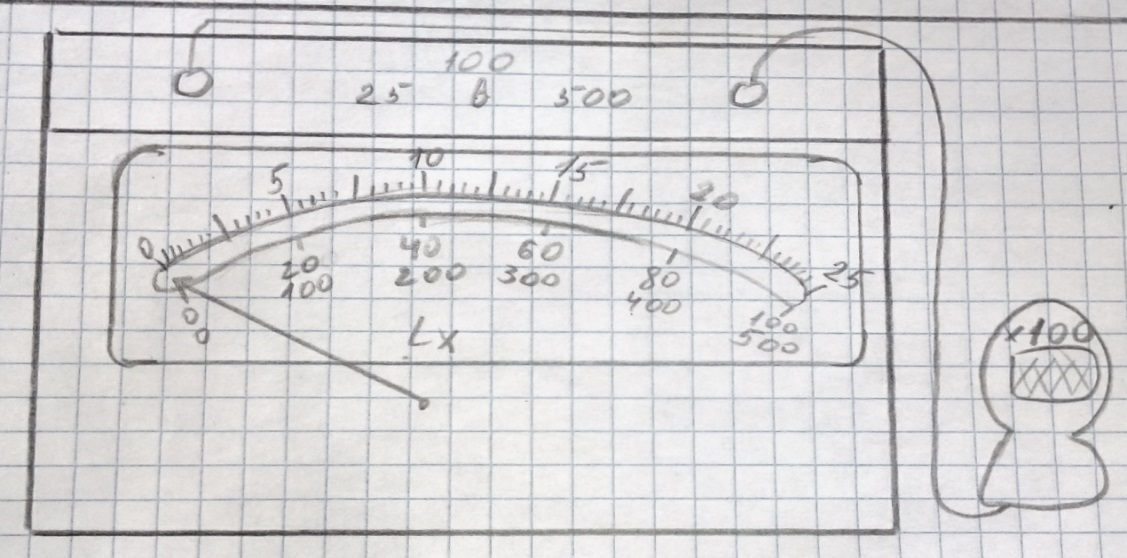 100
25 в 500
0 5 10 15 20 25
20 40 60 80 100
100 200 300 400 500
0
0
Lx
x100